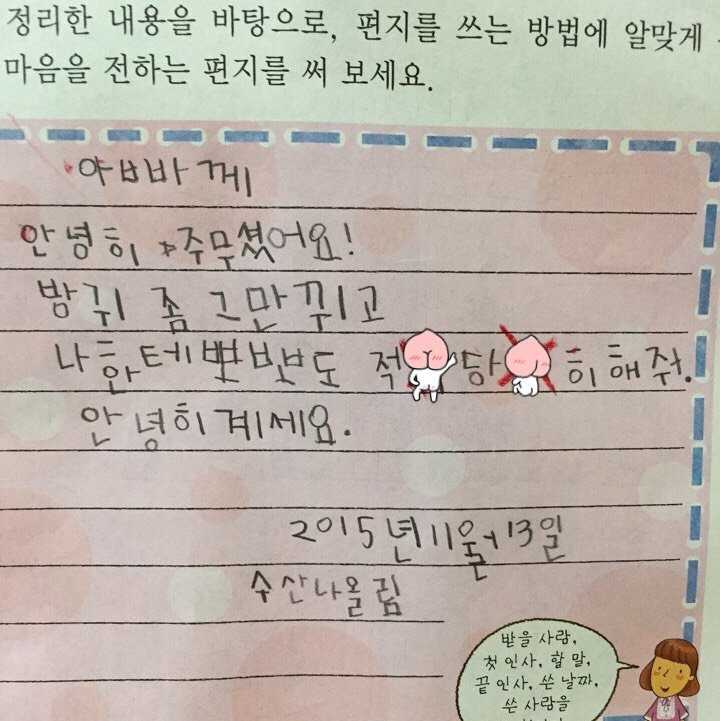 정리한 내용을 바탕으로, 편지를 쓰는 방법에 알맞게
마음을 전하는 편지를 써 보세요.
아빠께
안녕히 주무셨어요!
방귀 좀 그만 뀌고
나한테 뽀뽀도 적당히 해줘.
안녕히계세요.
2015년 11월 13일
수산나올림
받을 사람,
첫 인사, 할 말,
끝 인사, 쓴 날짜,
쓴 사람을